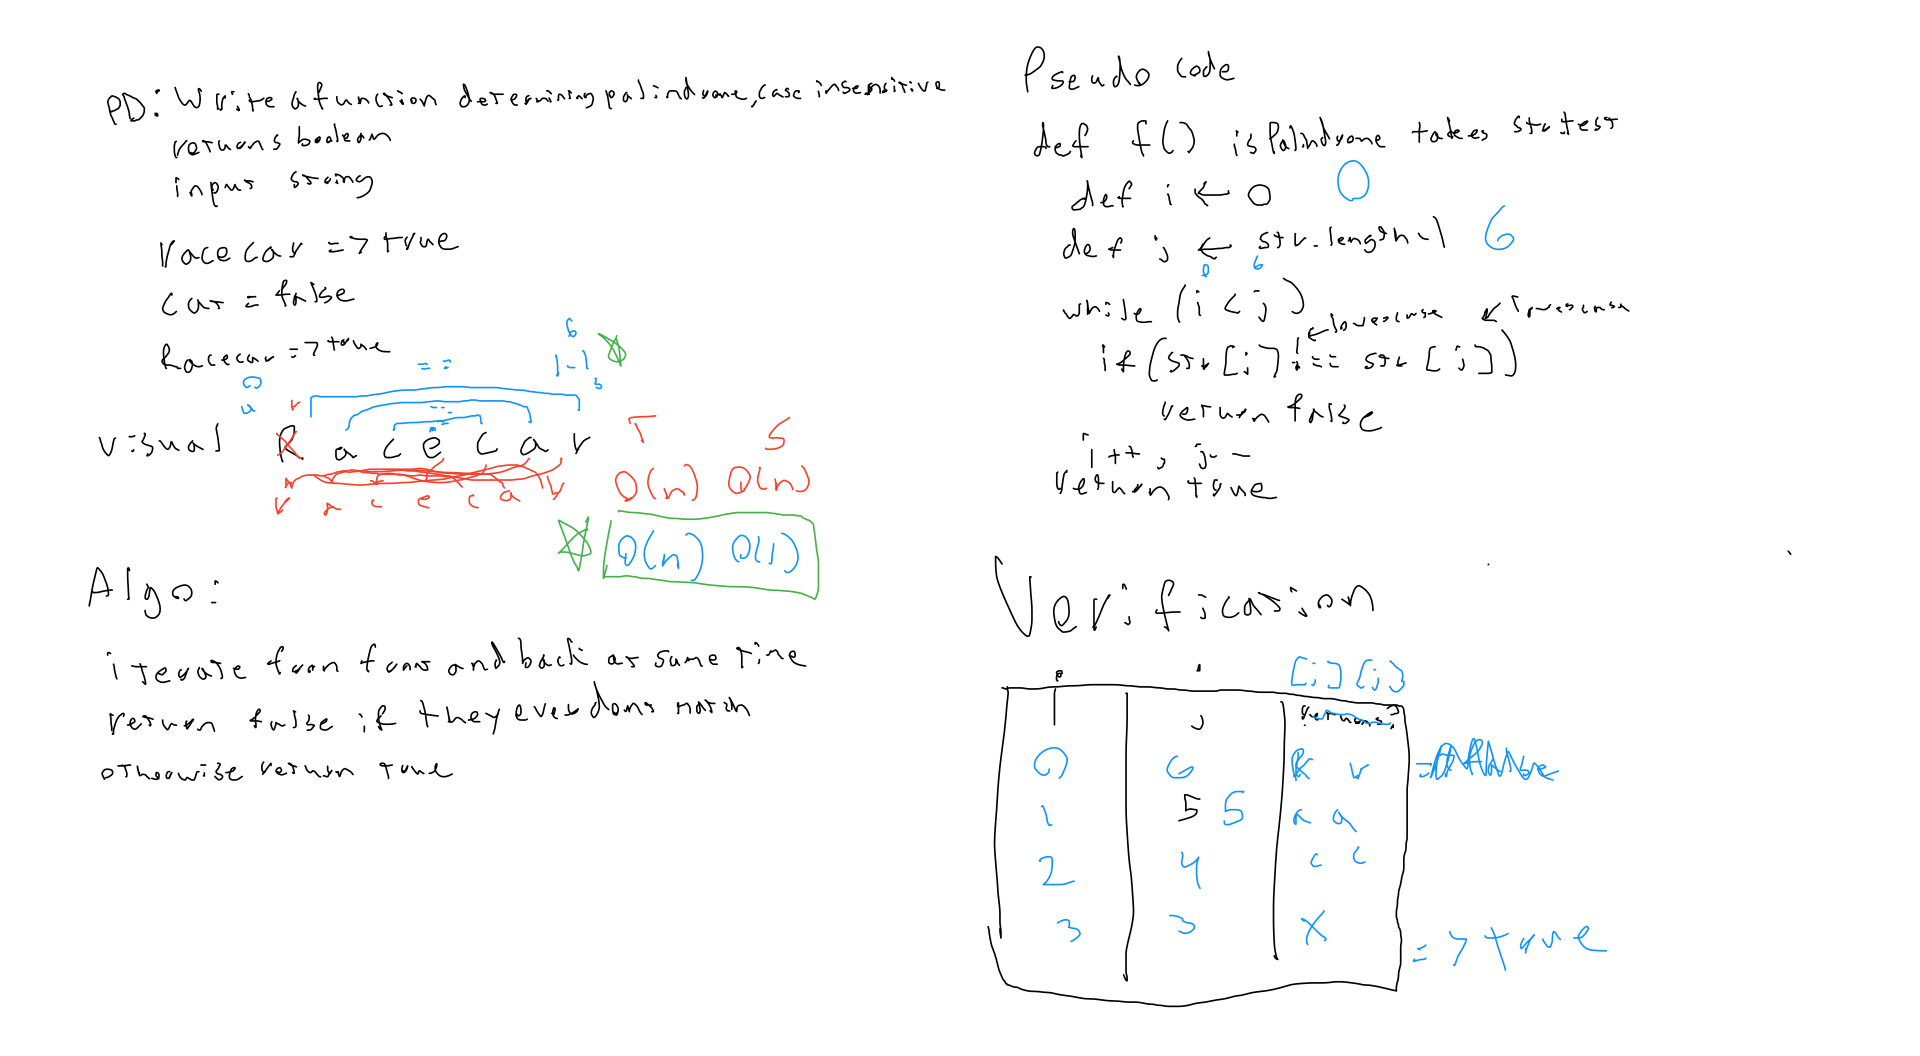 PD: Write a function determining palindrome, case insensitive
returns boolean
input string
racecar => true
car = false
Racecar => true
0
6
==
l-1
visual R a c e c a r
r a c e c a r
T S
O(n) O(n)
O(n) O(1)
Algo:
iterate from front and back at same time
return false if they ever dont match
otherwise return true
Pseudo code
def f() isPalindrome takes str.test
def i ← 0 0
def j ← str.length-1 6
0 6
while (i < j)
← lowercase ↙ lowercase
if (str[i] !== str[j])
return false
i++, j--
return true
Verification
[i] [j]
i j returns?
0 6 R r
1 5 5 a a
2 4 c c
3 3 X
=> true